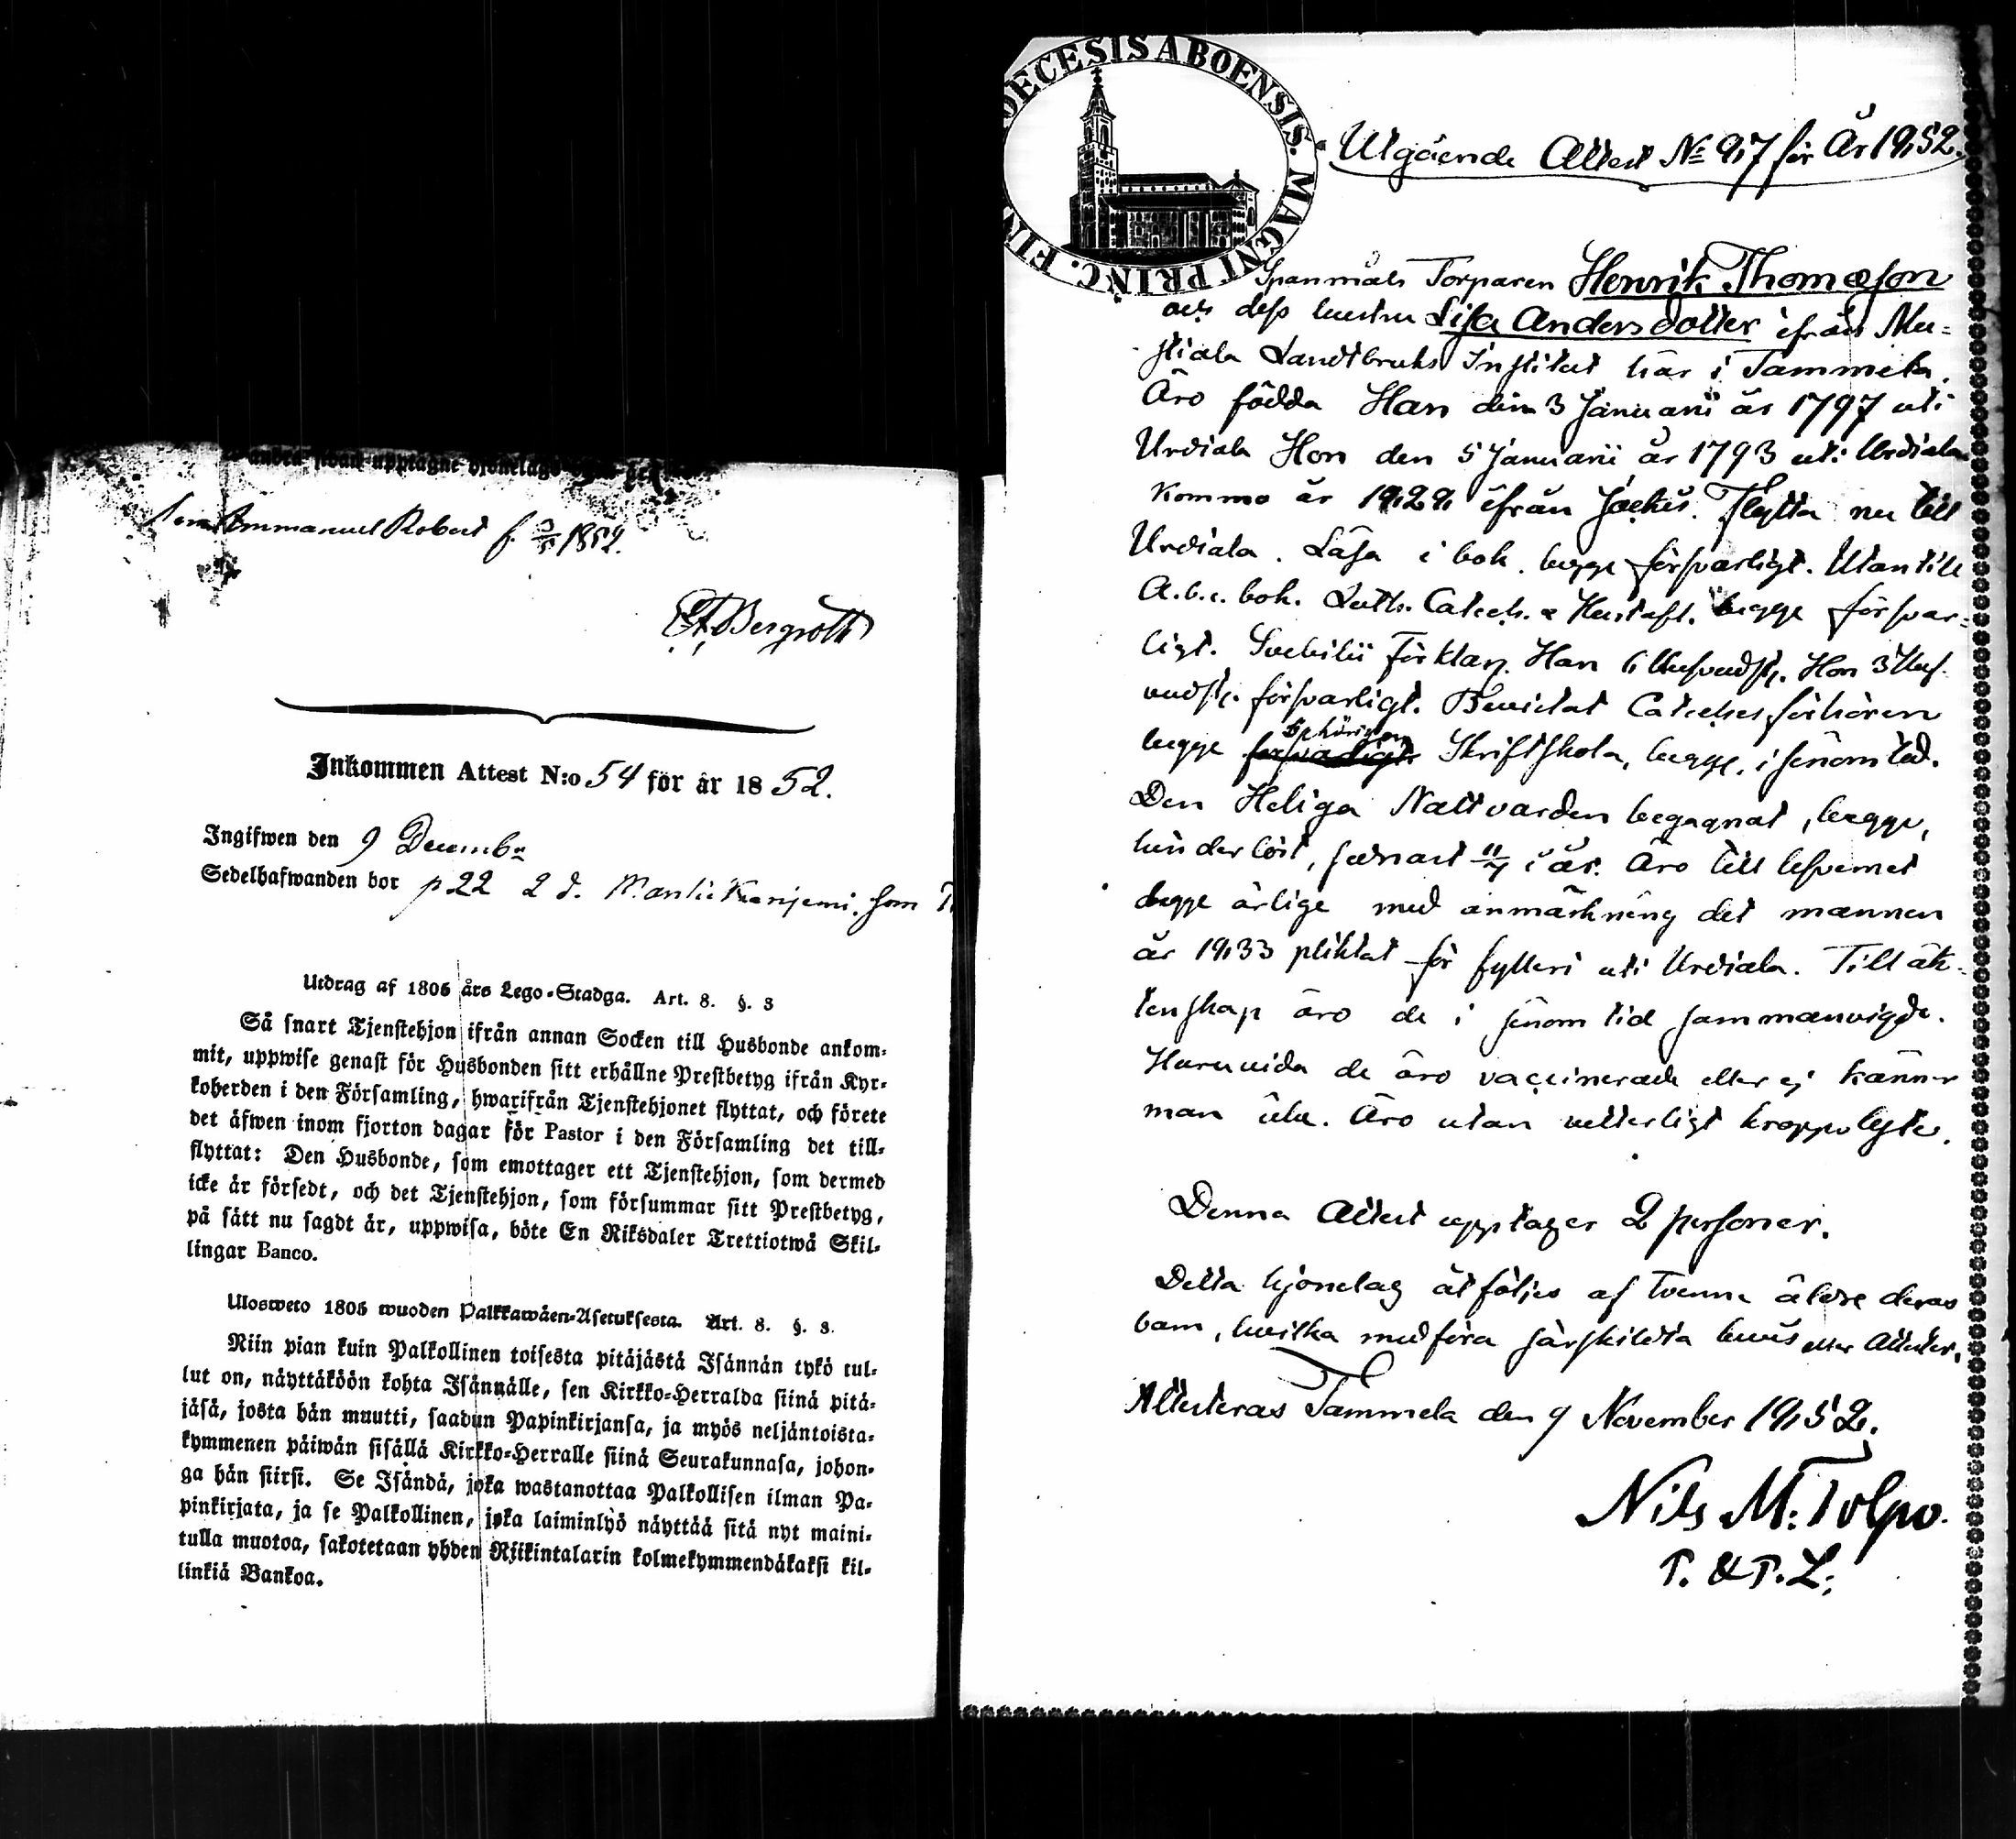 andre
Son Emmanuel Robert f. 3/5 1852.
Bergroth
Inkommen Attest N:o 54 för år 1852.
Ingifwen den 9 Decembr
Sedelhafwanden bor p 22 2 d.
Utdrag af 1805 års Lego-Stadga. Art. 8. §. 3
Så snart Tjenstehjon ifrån annan Socken till Husbonde ankom-
mit, uppwise genast för Husbonden sitt erhållne Prestbetyg ifrån Kyr-
koherden i den Församling, hwarifrån Tjenstehjonet flyttat, och förete
det äfwen inom fjorton dagar för Pastor i den Församling det till-
flyttat: Den Husbonde, som emottager ett Tjenstehjon, som dermed
icke är försedt, och det Tjenstehjon, som försummar sitt Prestbetyg,
på sätt nu sagdt är, uppwisa, böte En Riksdaler Trettiotwå Skil-
lingar Banco.
Ulosweto 1805 wuoden Palkkawäen-Asetuksesta. Art. 8. §. 3.
Niin pian kuin Palkollinen toisesta pitäjästä Isännän tykö tul-
lut on, näyttäköön kohta Isännälle, sen Kirkko-Herralda siinä pitä-
jäsä, josta hän muutti, saadun Papinkirjansa, ja myös neljäntoista-
kymmenen päiwän sisällä Kirkko-Herralle siinä Seurakunnasa, johon-
ga hän siirsi. Se Isändä, joka wastanottaa Palkollisen ilman Pa-
pinkirjata, ja se Palkollinen, joka laiminlyö näyttää sitä nyt maini-
tulla muotoa, sakotetaan yhden Riikintalarin kolmekymmendäkaksi kil-
linkiä Bankoa.
DECESIS ABOENSIS. MAGNI PRINC. FIN
Utgående Attest No 97 för År 1852.
Spanmåls Torparen Henrik Thomæson
och dess hustru Lisa Andersdotter ifrån Mu-
stiala Landtbruks Institut här i Tammela.
Äro födda Han den 3 Januarii år 1797 uti
Urdiala Hon den 5 Januarii år 1793 uti Urdiala
Kommo år 1828 ifrån Jockis. Flytta nu till
Urdiala. Läsa i bok, begge försvarligt. Utantill
A.b.c. bok. Luth. Catech. & Hustafl. begge försvar-
ligt. Svebilii Förklar. Han 6 Hufvudst. Hon 3 Huf-
vudst. försvarligt. Bevistat Catechesförhören
begge behörigen Skriftskola, begge, i sinom tid.
Den Heliga Nattvarden begagnat, begge,
hinderlöst, senast 11/4 i år. Äro till lefvernet
begge ärlige med anmärkning det mannen
år 1833 pliktat för fylleri uti Urdiala. Till äk-
tenskap äro de i sinom tid sammanvigde.
Huruvida de äro vaccinerade eller ej känner
man icke. Äro utan vetterligt kroppslyte.
Denna Attest upptager 2 personer.
Detta hjonelag åtföljes af tvenne äldre deras
barn, hvilka medföra särskildta bevis eller Attester.
Attesteras Tammela den 9 November 1852.
Nils M: Tolpo.
P. & P. L: